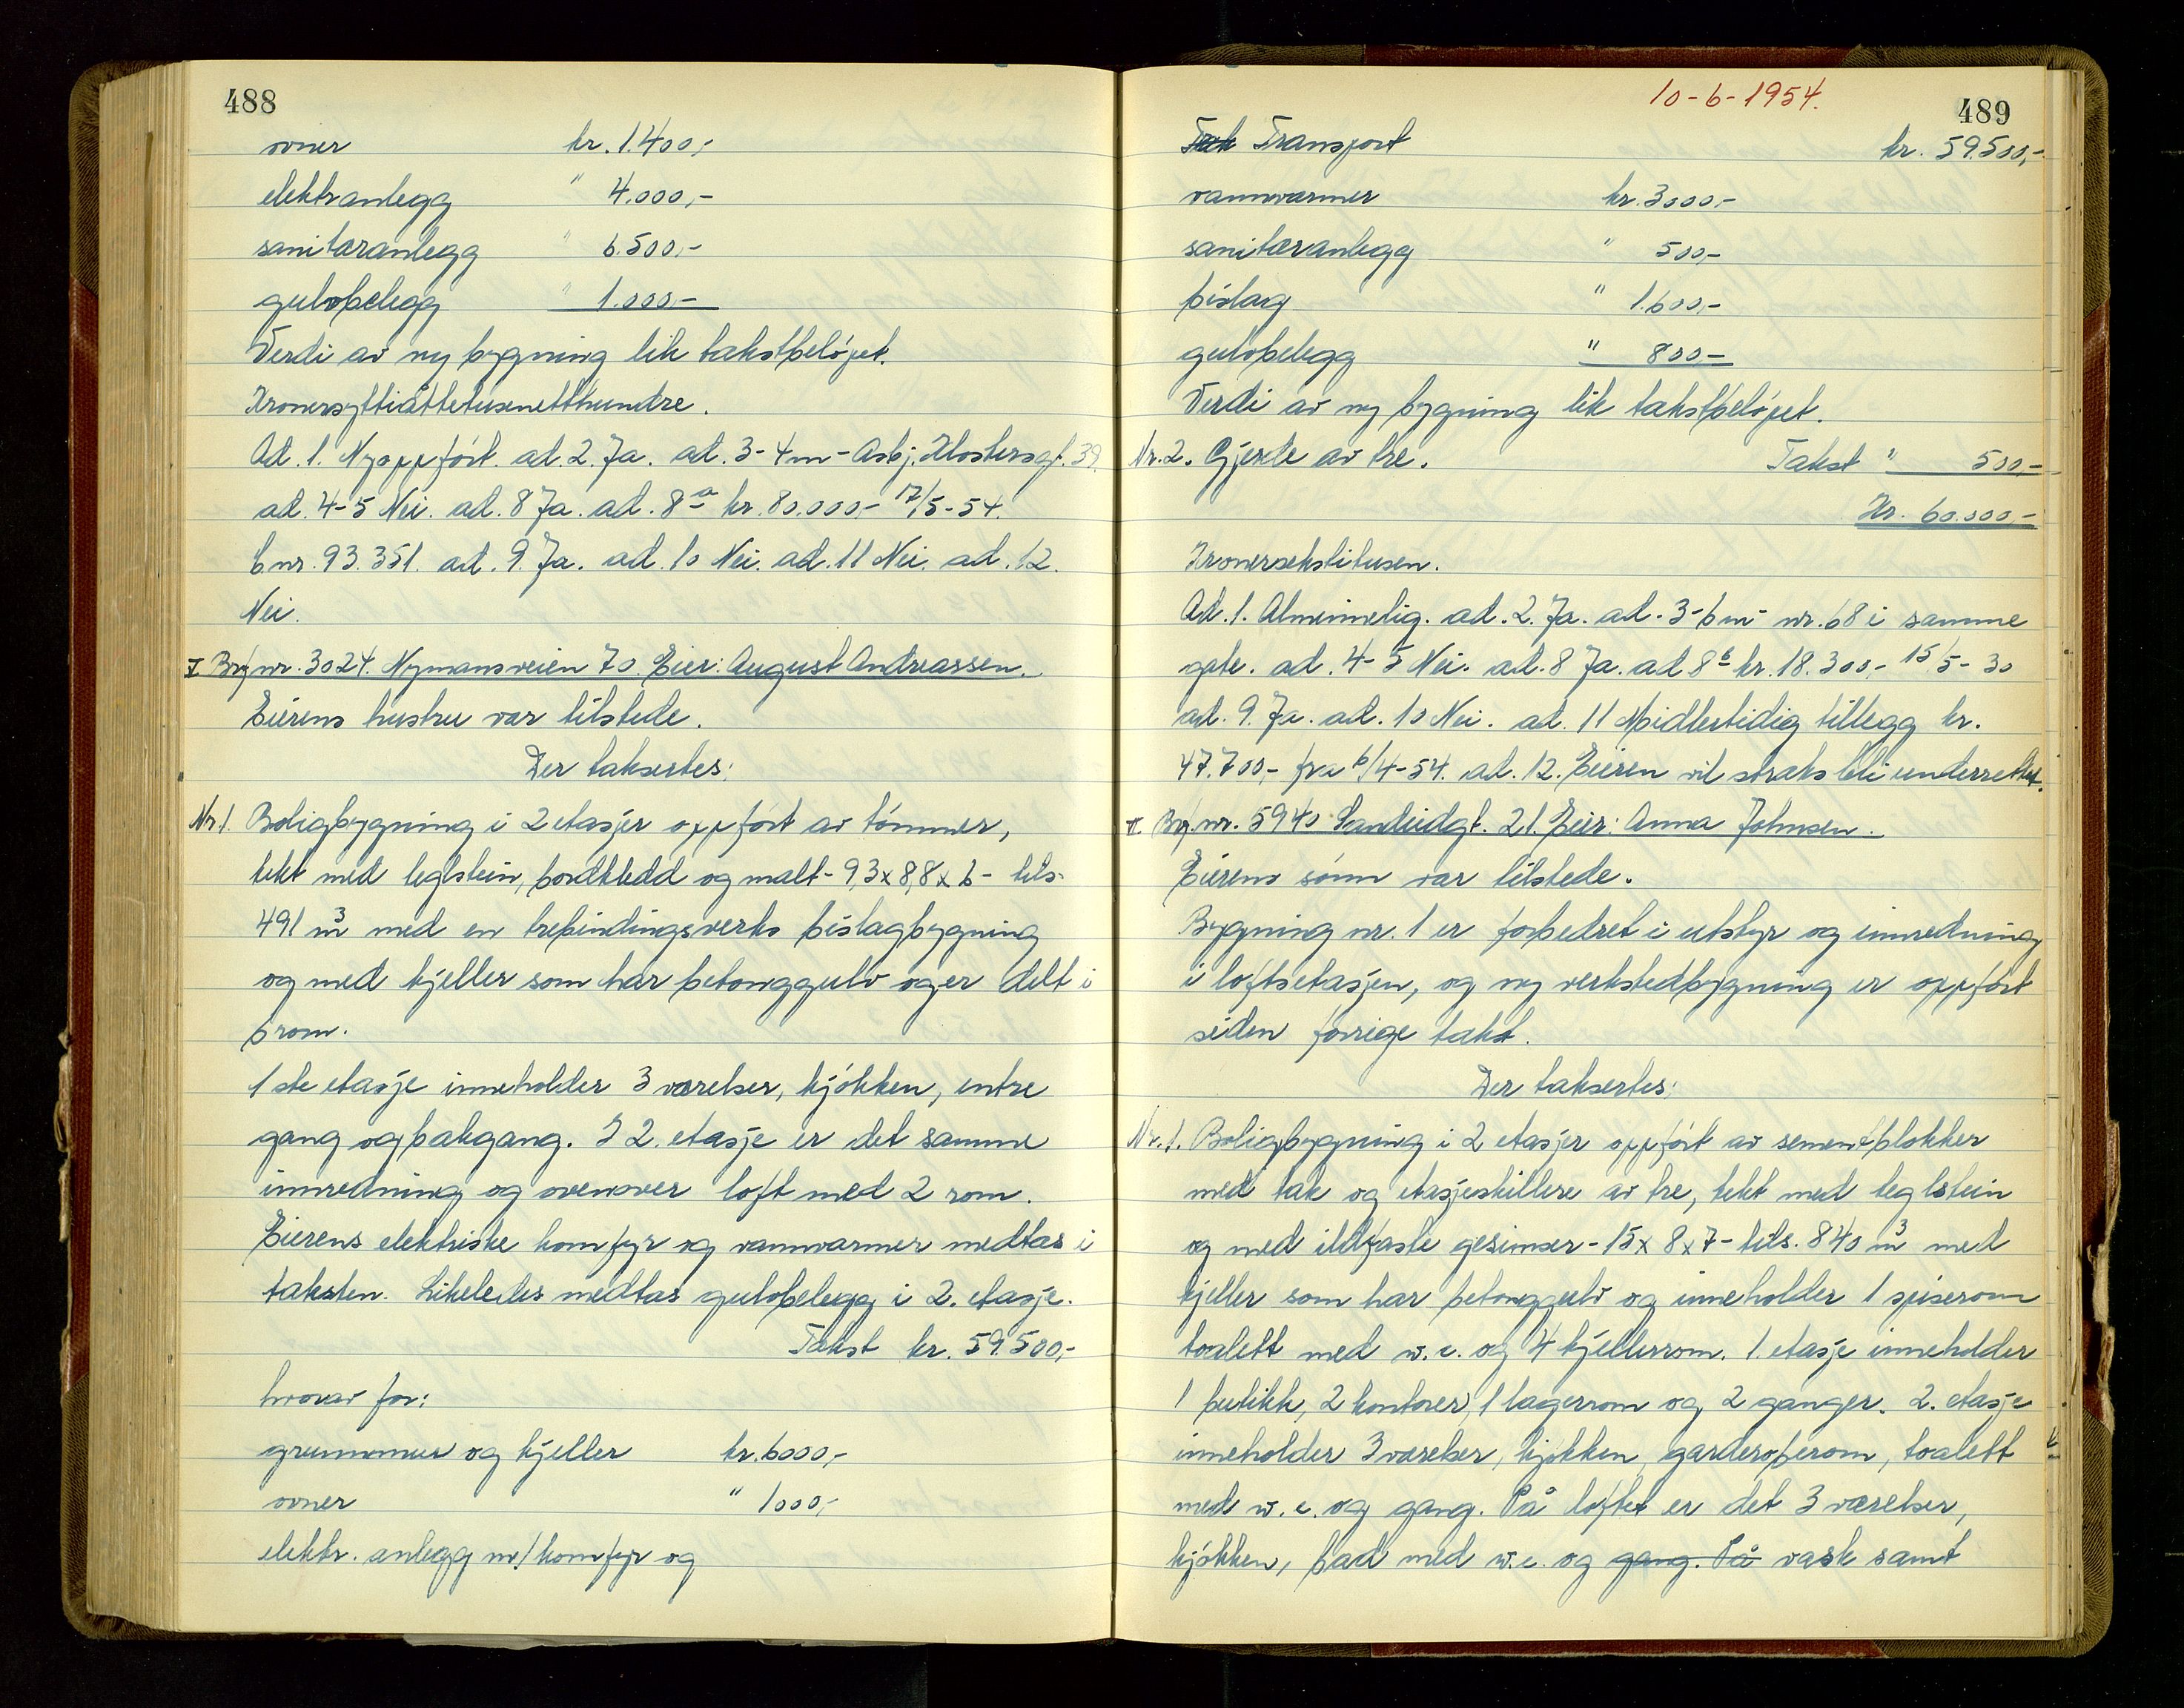 488
ovner kr. 1.400,-
elektr.anlegg " 4.000,-
sanitæranlegg " 6.500,-
gulvbelegg " 1.000,-
Verdi av ny bygning lik takstbeløpet.
Kronersyttiåttetusenetthundre.
Ad. 1. Nyoppført. ad. 2. Ja. ad. 3 - 4 m - Asbj. Klostersgt. 39.
ad. 4-5 Nei. ad. 8 Ja. ad. 8a kr. 80.000,- 17/5-54.
b.nr. 93.351. ad. 9. Ja. ad. 10 Nei. ad. 11 Nei. ad. 12.
Nei.
V. Brf nr. 3024. Nymansveien 70. Eier: August Andreassen.
Eierens hustru var tilstede.
Der taksertes:
Nr 1. Boligbygning i 2 etasjer oppført av tømmer,
tekt med teglstein, bordkledd og malt - 9,3 x 8,8 x 6 - tils.
491 m3 med en trebindingsverks bislagbygning
og med kjeller som har betonggulv og er delt i
6 rom.
1ste etasje inneholder 3 værelser, kjøkken, entre
gang og bakgang. I 2. etasje er det samme
innredning og ovenover loft med 2 rom.
Eierens elektriske komfyr og vannvarmer medtas i
taksten. Likeledes medtas gulvbelegg i 2. etasje.
Takst kr. 59.500,-
hvorav for:
grunnmur og kjeller kr. 6000,-
ovner " 1000,-
elektr. anlegg m/ komfyr og
10-6-1954.
489
Tak Transport kr. 59.500,-
vannvarmer kr. 3000,-
sanitæranlegg " 500,-
bislag " 1.600,-
gulvbelegg " 800,-
Verdi av ny bygning lik takstbeløpet.
Nr. 2. Gjerde av tre. Takst " 500,-
Kr. 60.000,-
Kronersekstitusen.
Ad. 1. Alminnelig. ad. 2. Ja. ad. 3 - 6 m - nr. 68 i samme
gate. ad. 4-5 Nei. ad. 8 Ja. ad 8b kr. 18.300,- 15/5-30
ad. 9. Ja. ad. 10 Nei. ad. 11 Midlertidig tillegg kr.
47.700,- fra 6/4-54. ad. 12. Eieren vil straks bli underrettet.
VI. Brf. nr. 5940 Sandeidgt. 21. Eier: Anna Johnsen.
Eierens sønn var tilstede.
Bygning nr. 1 er forbedret i utstyr og innredning
i loftsetasjen, og ny verkstedbygning er oppført
siden forrige takst.
Der taksertes:
Nr. 1. Boligbygning i 2 etasjer oppført av sementblokker
med tak og etasjeskillere av tre, tekt med teglstein
og med ildfaste gesimser - 15 x 8 x 7 - tils. 840 m3 med
kjeller som har betonggulv og inneholder 1 spiserom
toalett med w.c. og 4 kjellerrom. 1. etasje inneholder
1 butikk, 2 kontorer, 1 lagerrom og 2 ganger. 2. etasje
inneholder 3 værelser, kjøkken, garderoberom, toalett
med w.c. og gang. På loftet er det 3 værelser,
kjøkken, bad med w.c. og gang. På vask samt